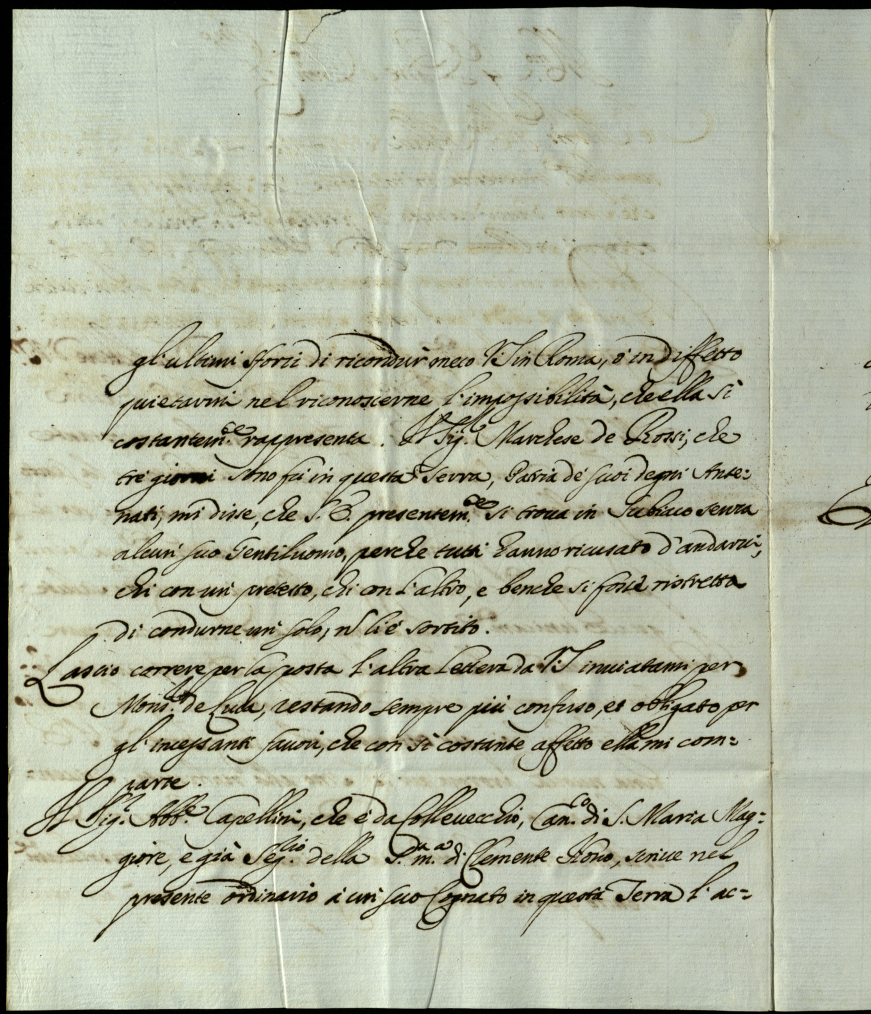 gl'ultimi sforzi di ricondur meco V.S. in Roma, ò in diffetto
quietarmi nel riconoscerne l'impossibilità, che ella sì
costantem.te rappresenta. Il Sig.r Marchese de Rossi, che
tre giorni sono fù in questa Terra, Patria de suoi degni Ante=
nati, mi disse, che S.E. presentem.te si troua in Subiaco senza
alcun suo Gentiluomo, perche tutti hanno ricusato d'andarui,
chi con un pretesto, chi con l'altro, e benche si fosse ristretta
di condurne un solo, nè li è sortito.
Lascio correre per la posta l'altra lettera da V.S. inuiatami per
Mons.r de Luca, restando sempre più confuso, et obligato per
gl'incessanti fauori, che con sì costante affetto ella mi com=
parte.
Il Sig.r Abb.e Capellini, che è da Colleuecchio, Can.co di S. Maria Mag=
giore, e già Seg.rio della S.a m.a di Clemente Nono, scriue nel
presente ordinario à un suo Cognato in questa Terra l'ac=